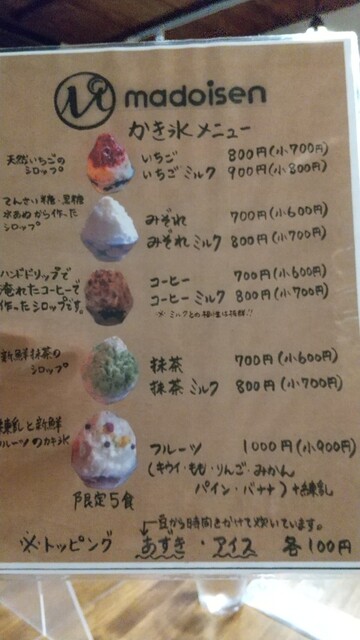 madoisen
かき氷メニュー
天然いちごの
シロップ
いちご 800円(小700円)
いちごミルク 900円(小800円)
てんさい糖・黒糖
水あめから作った
シロップ
みぞれ 700円(小600円)
みぞれミルク 800円(小700円)
ハンドドリップで
淹れたコーヒーで
作ったシロップです。
コーヒー 700円(小600円)
コーヒーミルク 800円(小700円)
※ミルクとの相性は抜群!!
新鮮抹茶の
シロップ
抹茶 700円(小600円)
抹茶ミルク 800円(小700円)
練乳と新鮮
フルーツのカキ氷
フルーツ 1000円(小900円)
(キウイ・もも・りんご・みかん
パイン・バナナ)+練乳
限定5食
豆から8時間をかけて炊いています。
※トッピング あずき・アイス 各100円